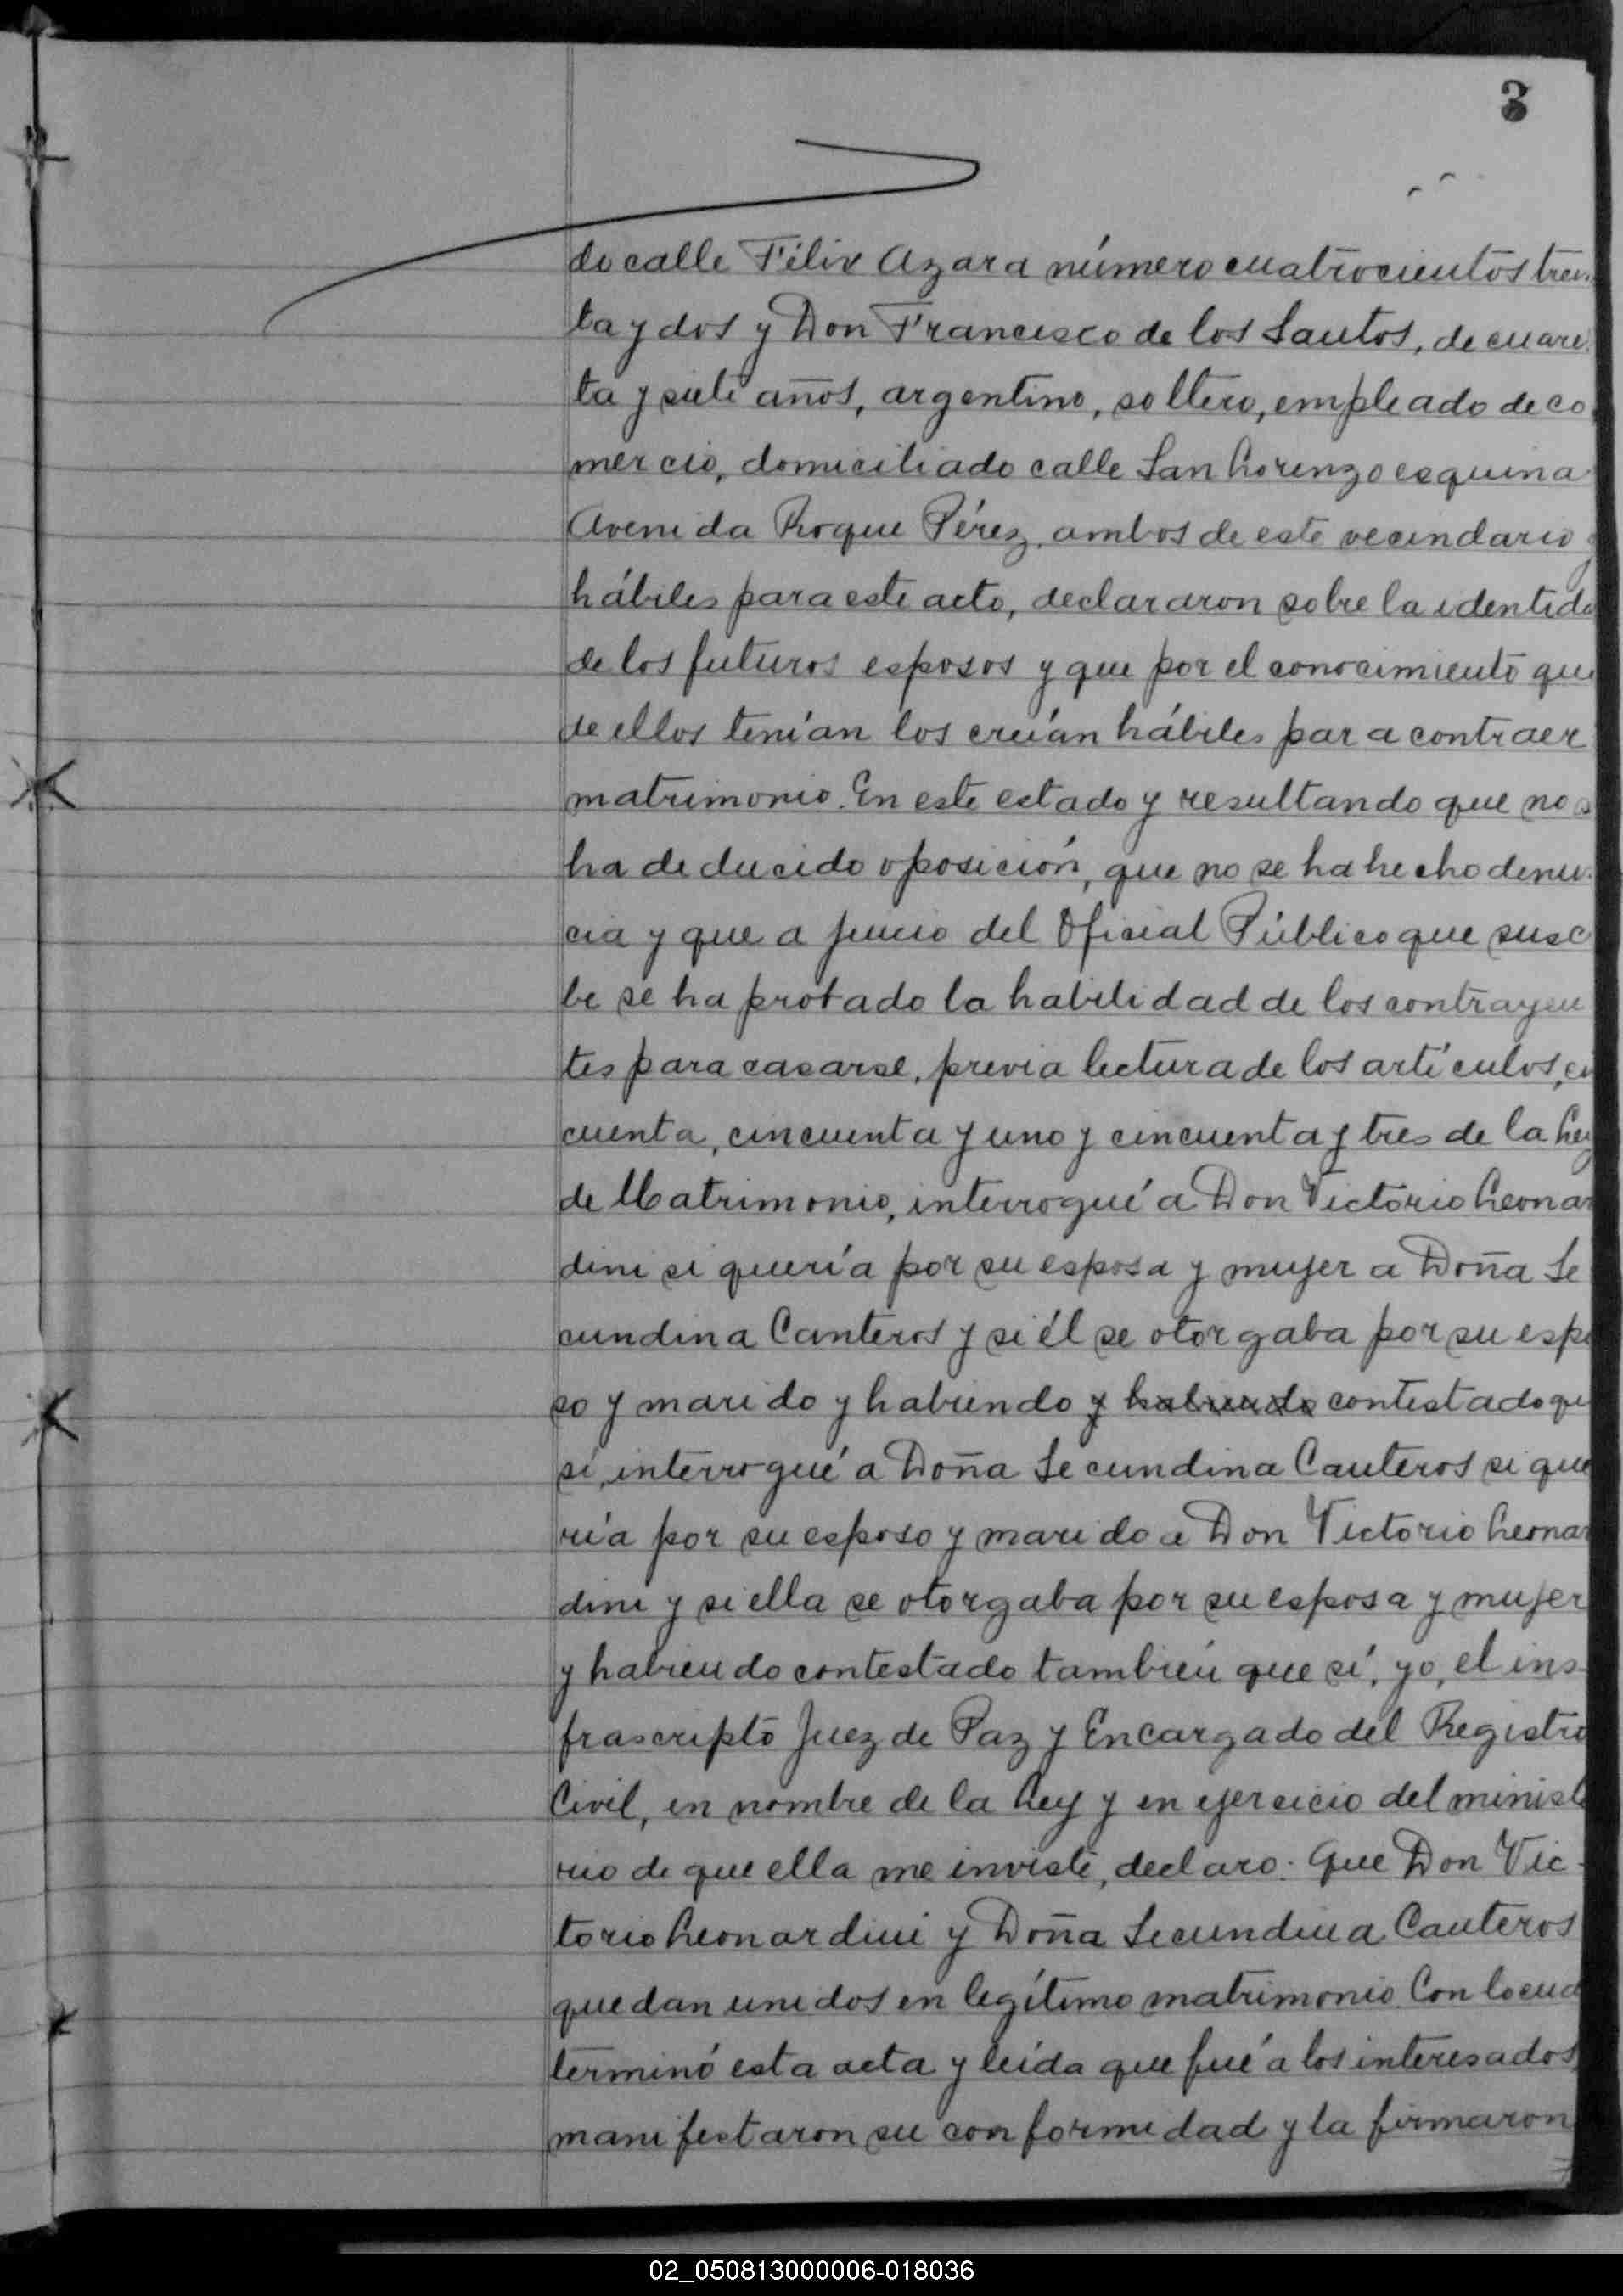 3
do calle Félix Azara número cuatrocientos trein
ta y dos y Don Francisco de los Santos, de cuaren
ta y siete años, argentino, soltero, empleado de co
mercio, domiciliado calle San Lorenzo esquina
Avenida Roque Pérez, ambos de este vecindario y
hábiles para este acto, declararon sobre la identida
de los futuros esposos y que por el conocimiento que
de ellos tenían los creían hábiles para contraer
matrimonio. En este estado y resultando que no s
ha deducido oposición, que no se ha hecho denun
cia y que a juicio del Oficial Público que susc
be se ha probado la habilidad de los contrayen
tes para casarse, previa lectura de los artículos, cin
cuenta, cincuenta y uno y cincuenta y tres de la Ley
de Matrimonio, interrogué a Don Victorio Leonar
dini si quería por su esposa y mujer a Doña Se
cundina Canteros y si él se otorgaba por su espo
so y marido y habiendo y habiendo contestado que
sí, interrogué a Doña Secundina Canteros si que
ría por su esposo y marido a Don Victorio Leonar
dini y si ella se otorgaba por su esposa y mujer
y habiendo contestado también que sí, yo, el ins-
frascripto Juez de Paz y Encargado del Registro
Civil, en nombre de la Ley y en ejercicio del ministe
rio de que ella me inviste, declaro: Que Don Vic-
torio Leonardini y Doña Secundina Canteros
quedan unidos en legítimo matrimonio. Con lo cual
terminó esta acta y leída que fué a los interesados
manifestaron su conformidad y la firmaron
02_050813000006-018036